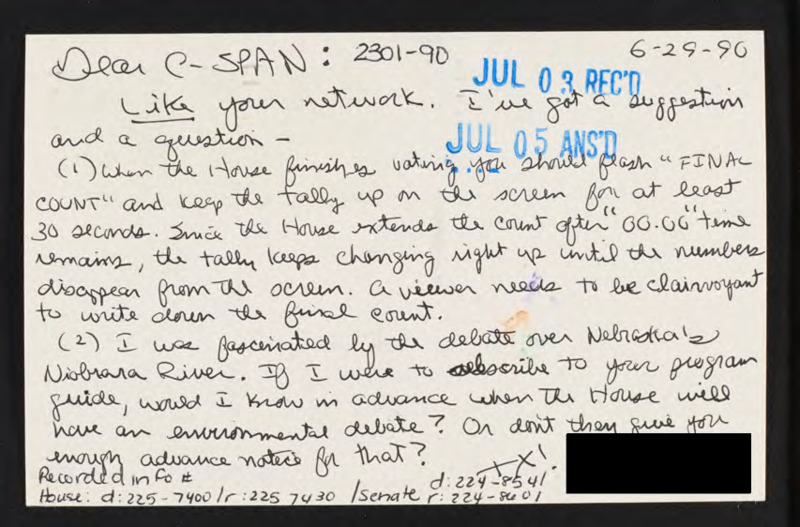 Dear C-SPAN: 2301-90 6-29-90
JUL 03 REC'D
Like your network. I've got a suggestion
and a question -
JUL 05 ANS'D
(1) When the House finishes voting you should flash "FINAL
COUNT" and keep the tally up on the screen for at least
30 seconds. Since the House extends the count after "00.00" time
remains, the tally keeps changing right up until the numbers
disappear from the screen. A viewer needs to be clairvoyant
to write down the final count.
(2) I was fascinated by the debate over Nebraska's
Niobrara River. If I were to subscribe to your program
guide, would I know in advance when the House will
have an environmental debate? Or don't they give you
enough advance notice for that?
Recorded info #
House: d: 225-7400/r: 225 7430 /Senate d: 224-8541
r: 224-8601